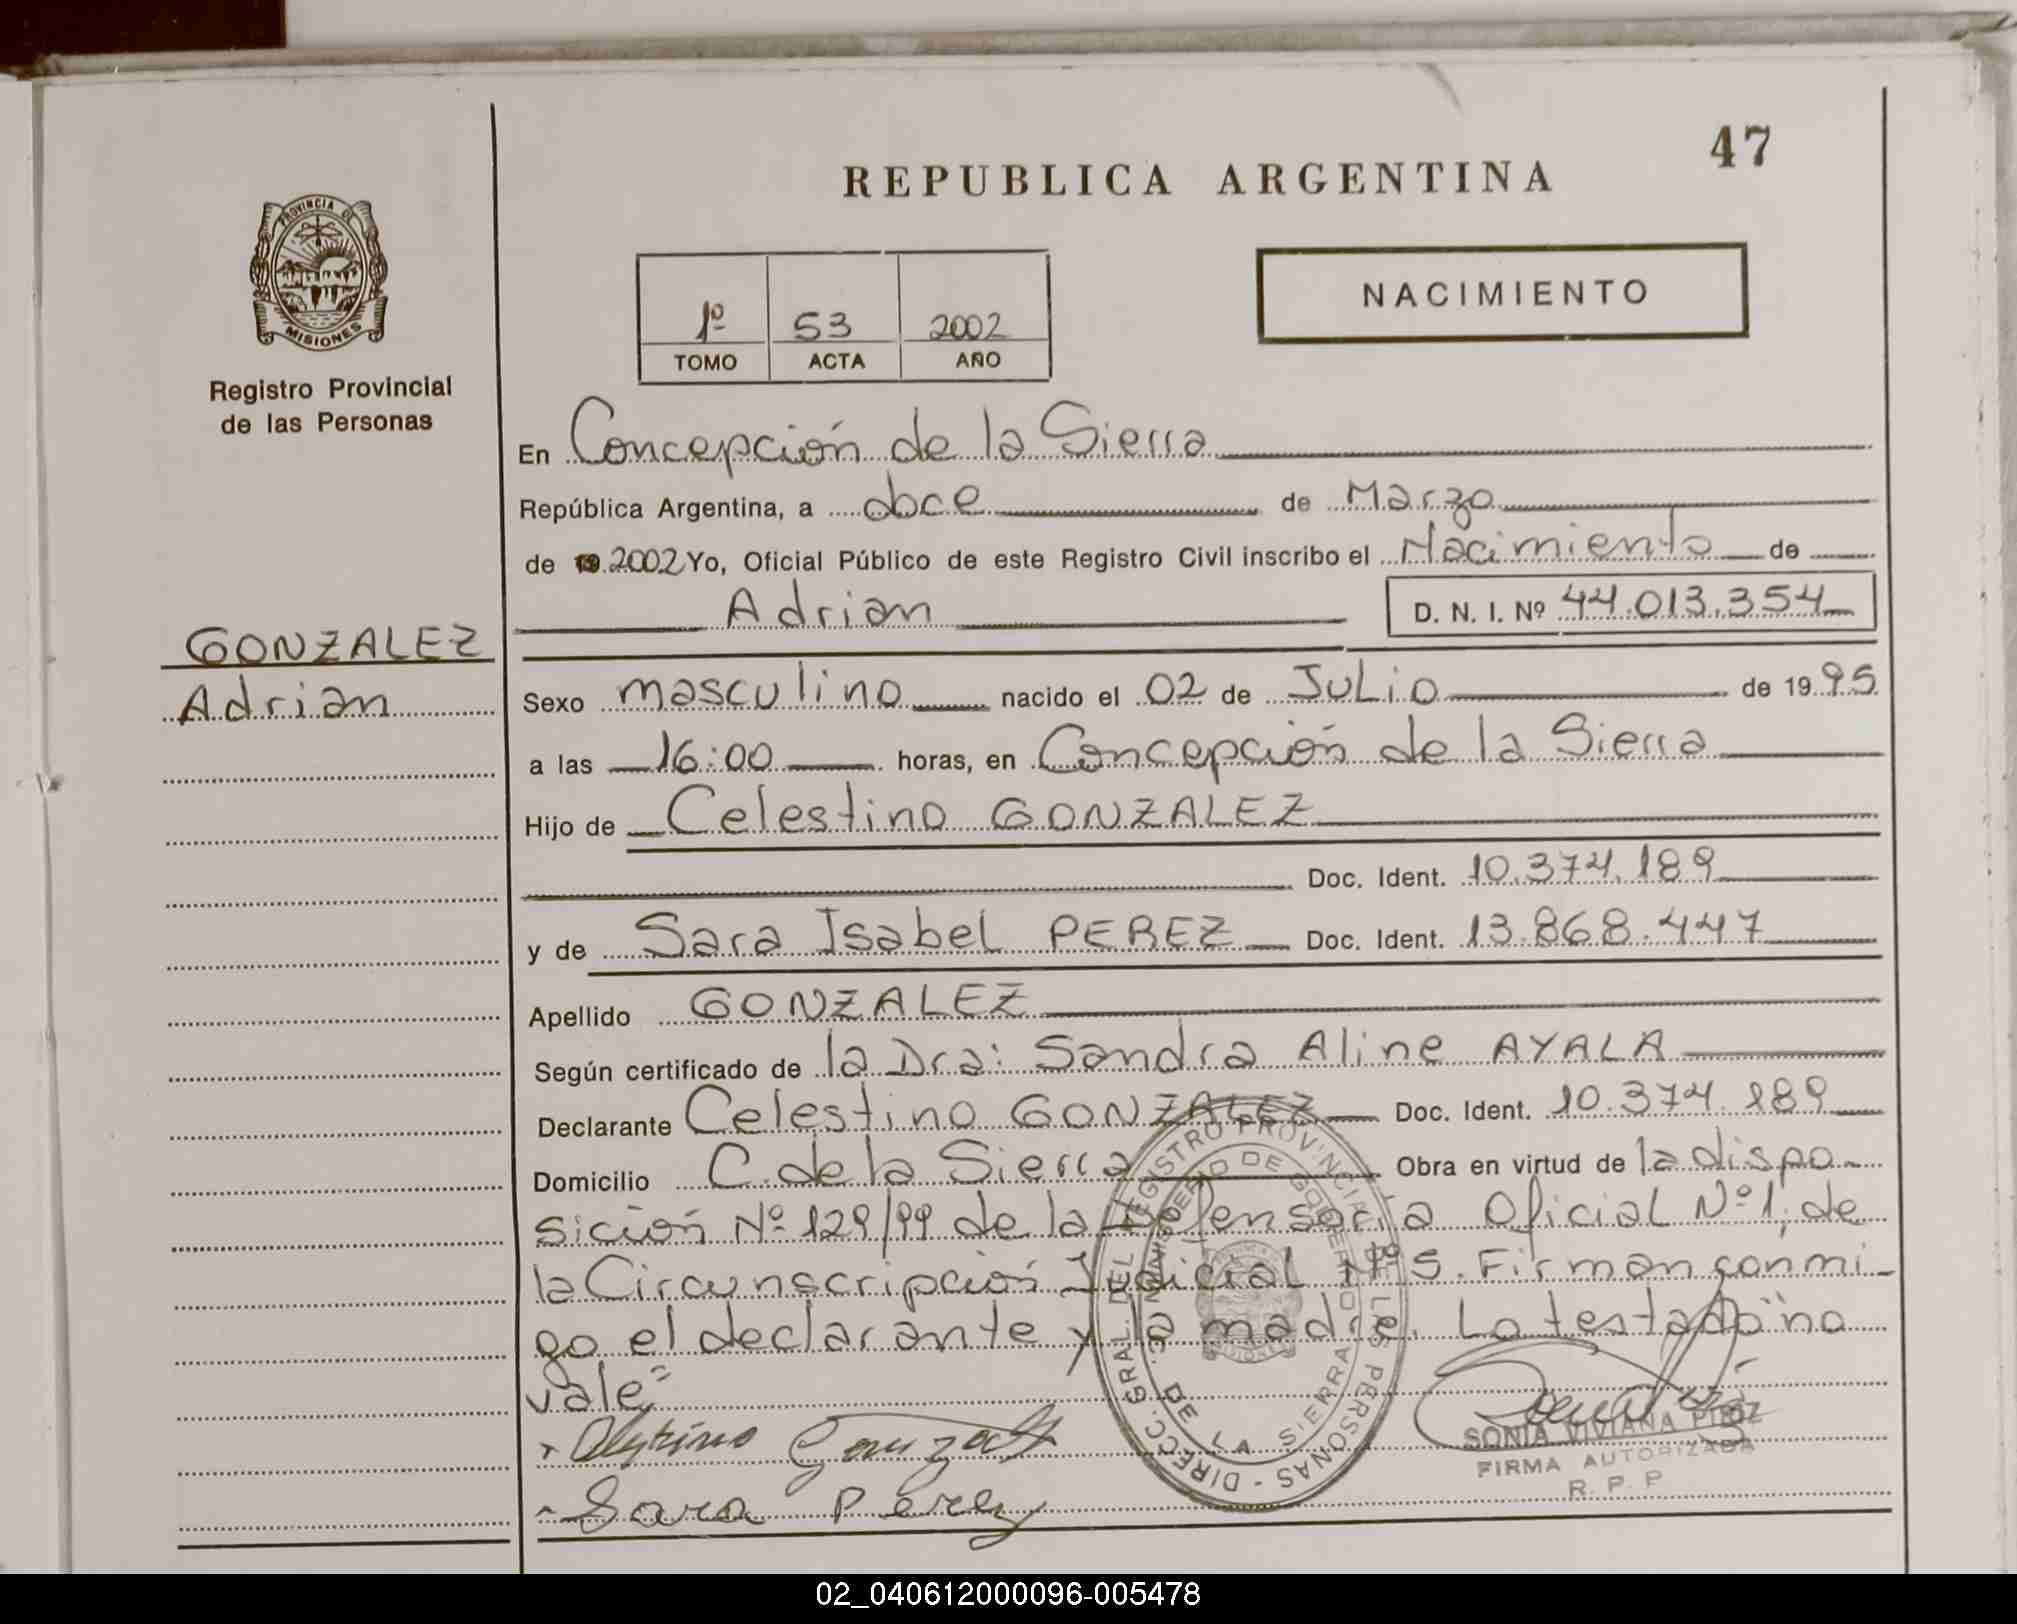 47
REPUBLICA ARGENTINA
PROVINCIA DE
MISIONES
Registro Provincial
de las Personas
NACIMIENTO
1º 53 2002
TOMO ACTA AÑO
En Concepción de la Sierra
República Argentina, a doce de Marzo
de 19 2002 Yo, Oficial Público de este Registro Civil inscribo el Nacimiento de
Adrian D. N. I. Nº 44.013.354
GONZALEZ
Adrian
Sexo masculino nacido el 02 de Julio de 1995
a las 16:00 horas, en Concepción de la Sierra
Hijo de Celestino GONZALEZ
Doc. Ident. 10.374.189
y de Sara Isabel PEREZ Doc. Ident. 13.868.447
Apellido GONZALEZ
Según certificado de la Dra: Sandra Aline AYALA
Declarante Celestino GONZALEZ Doc. Ident. 10.374.189
Domicilio C. de la Sierra Obra en virtud de la dispo-
sición Nº 129/99 de la Defensoría Oficial Nº 1, de
la Circunscripción Judicial Nº 5. Firman conmi-
go el declarante y la madre. Lo testado: "no
vale"
Gonzalez
Sara Perez
DIRECC. GRAL. DEL REGISTRO PROVINCIAL DE LAS PERSONAS
MINISTERIO DE GOBIERNO
DE LA SIERRA
SONIA VIVIANA
FIRMA AUTORIZADA
R. P. P.
02_040612000096-005478